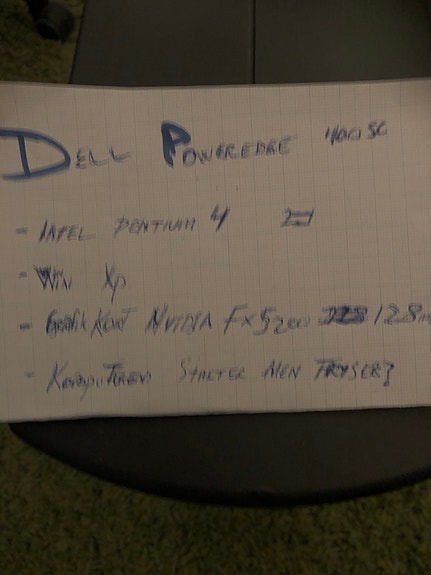 DELL POWEREDGE 400SC
- INPEL PENTIUM 4
- WIN XP
- Grafik KORT NVIDIA FX5200 128m
- KOMPUTEREN STARTER MEN FRYSER?